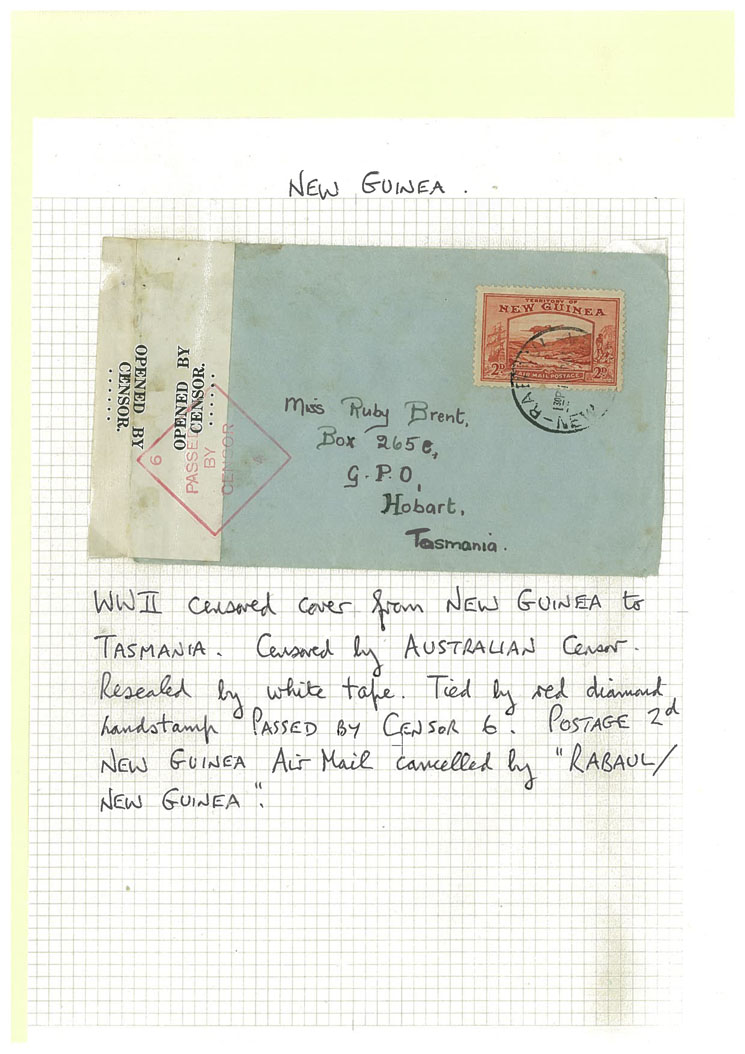 NEW GUINEA.
TERRITORY OF
NEW GUINEA
2D AIR MAIL POSTAGE 2D
OPENED BY
CENSOR.
OPENED BY
CENSOR.
6
PASSED
BY
CENSOR
Miss Ruby Brent,
Box 265e,
G.P.O,
Hobart,
Tasmania.
WWII censored cover from NEW GUINEA to
TASMANIA. Censored by AUSTRALIAN Censor.
Resealed by white tape. Tied by red diamond
handstamp PASSED BY CENSOR 6. POSTAGE 2d
NEW GUINEA Air Mail cancelled by "RABAUL/
NEW GUINEA".